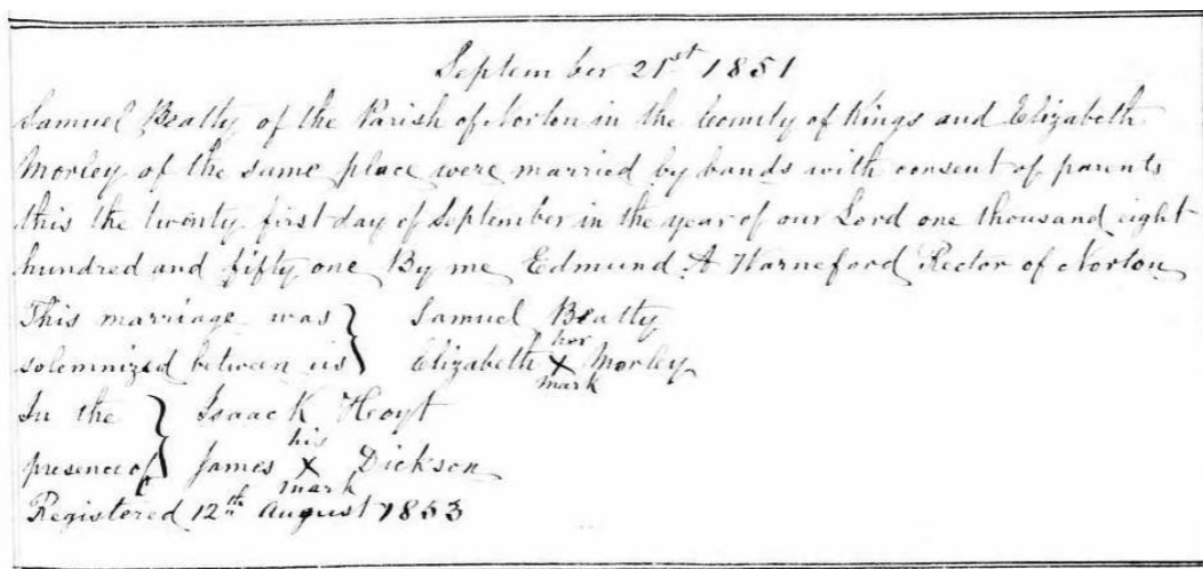 September 21st 1851
Samuel Beatty of the Parish of Norton in the County of Kings and Elizabeth
Morley of the same place were married by bands with consent of parents
this the twenty first day of September in the year of our Lord one thousand eight
hundred and fifty one By me Edmund A Warneford Rector of Norton
This marriage was } Samuel Beatty
solemnized between us } Elizabeth her X mark Morley
In the } Isaac K Hoyt
presence of } James his X mark Dickson
Registered 12th August 1853